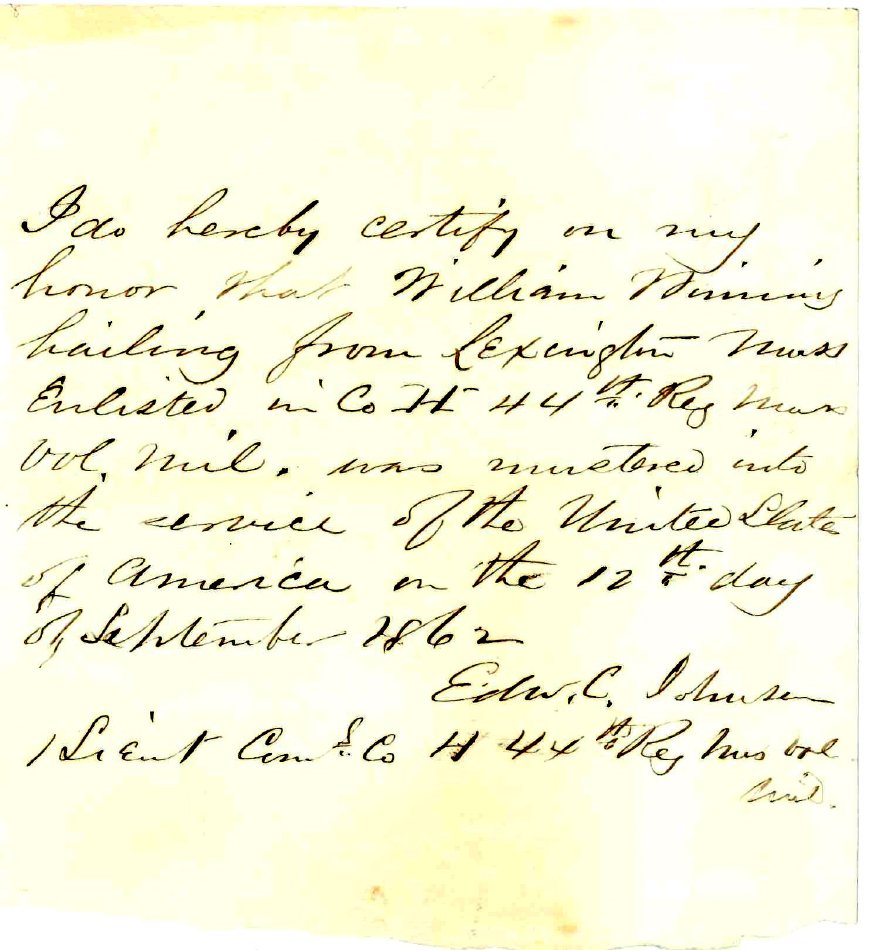 I do hereby certify on my
honor that William Winning
hailing from Lexington Mass
Enlisted in Co H 44th Reg Mass
Vol. Mil. was mustered into
the service of the United States
of America on the 12th day
of September 1862
Edw. C. Johnson
1 Lieut Comd. Co H 44th Reg Mas Vol
Mil.